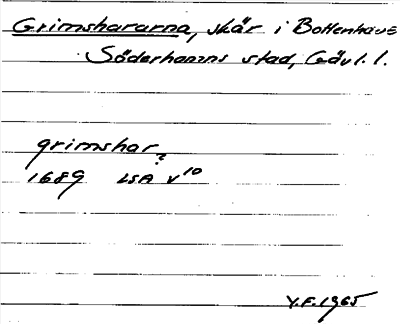 Grimshararna, skär i Bottenhave
Söderhamns stad, Gävl. l.
grimshar
?
1689 LSA V10
Y.F. 1965